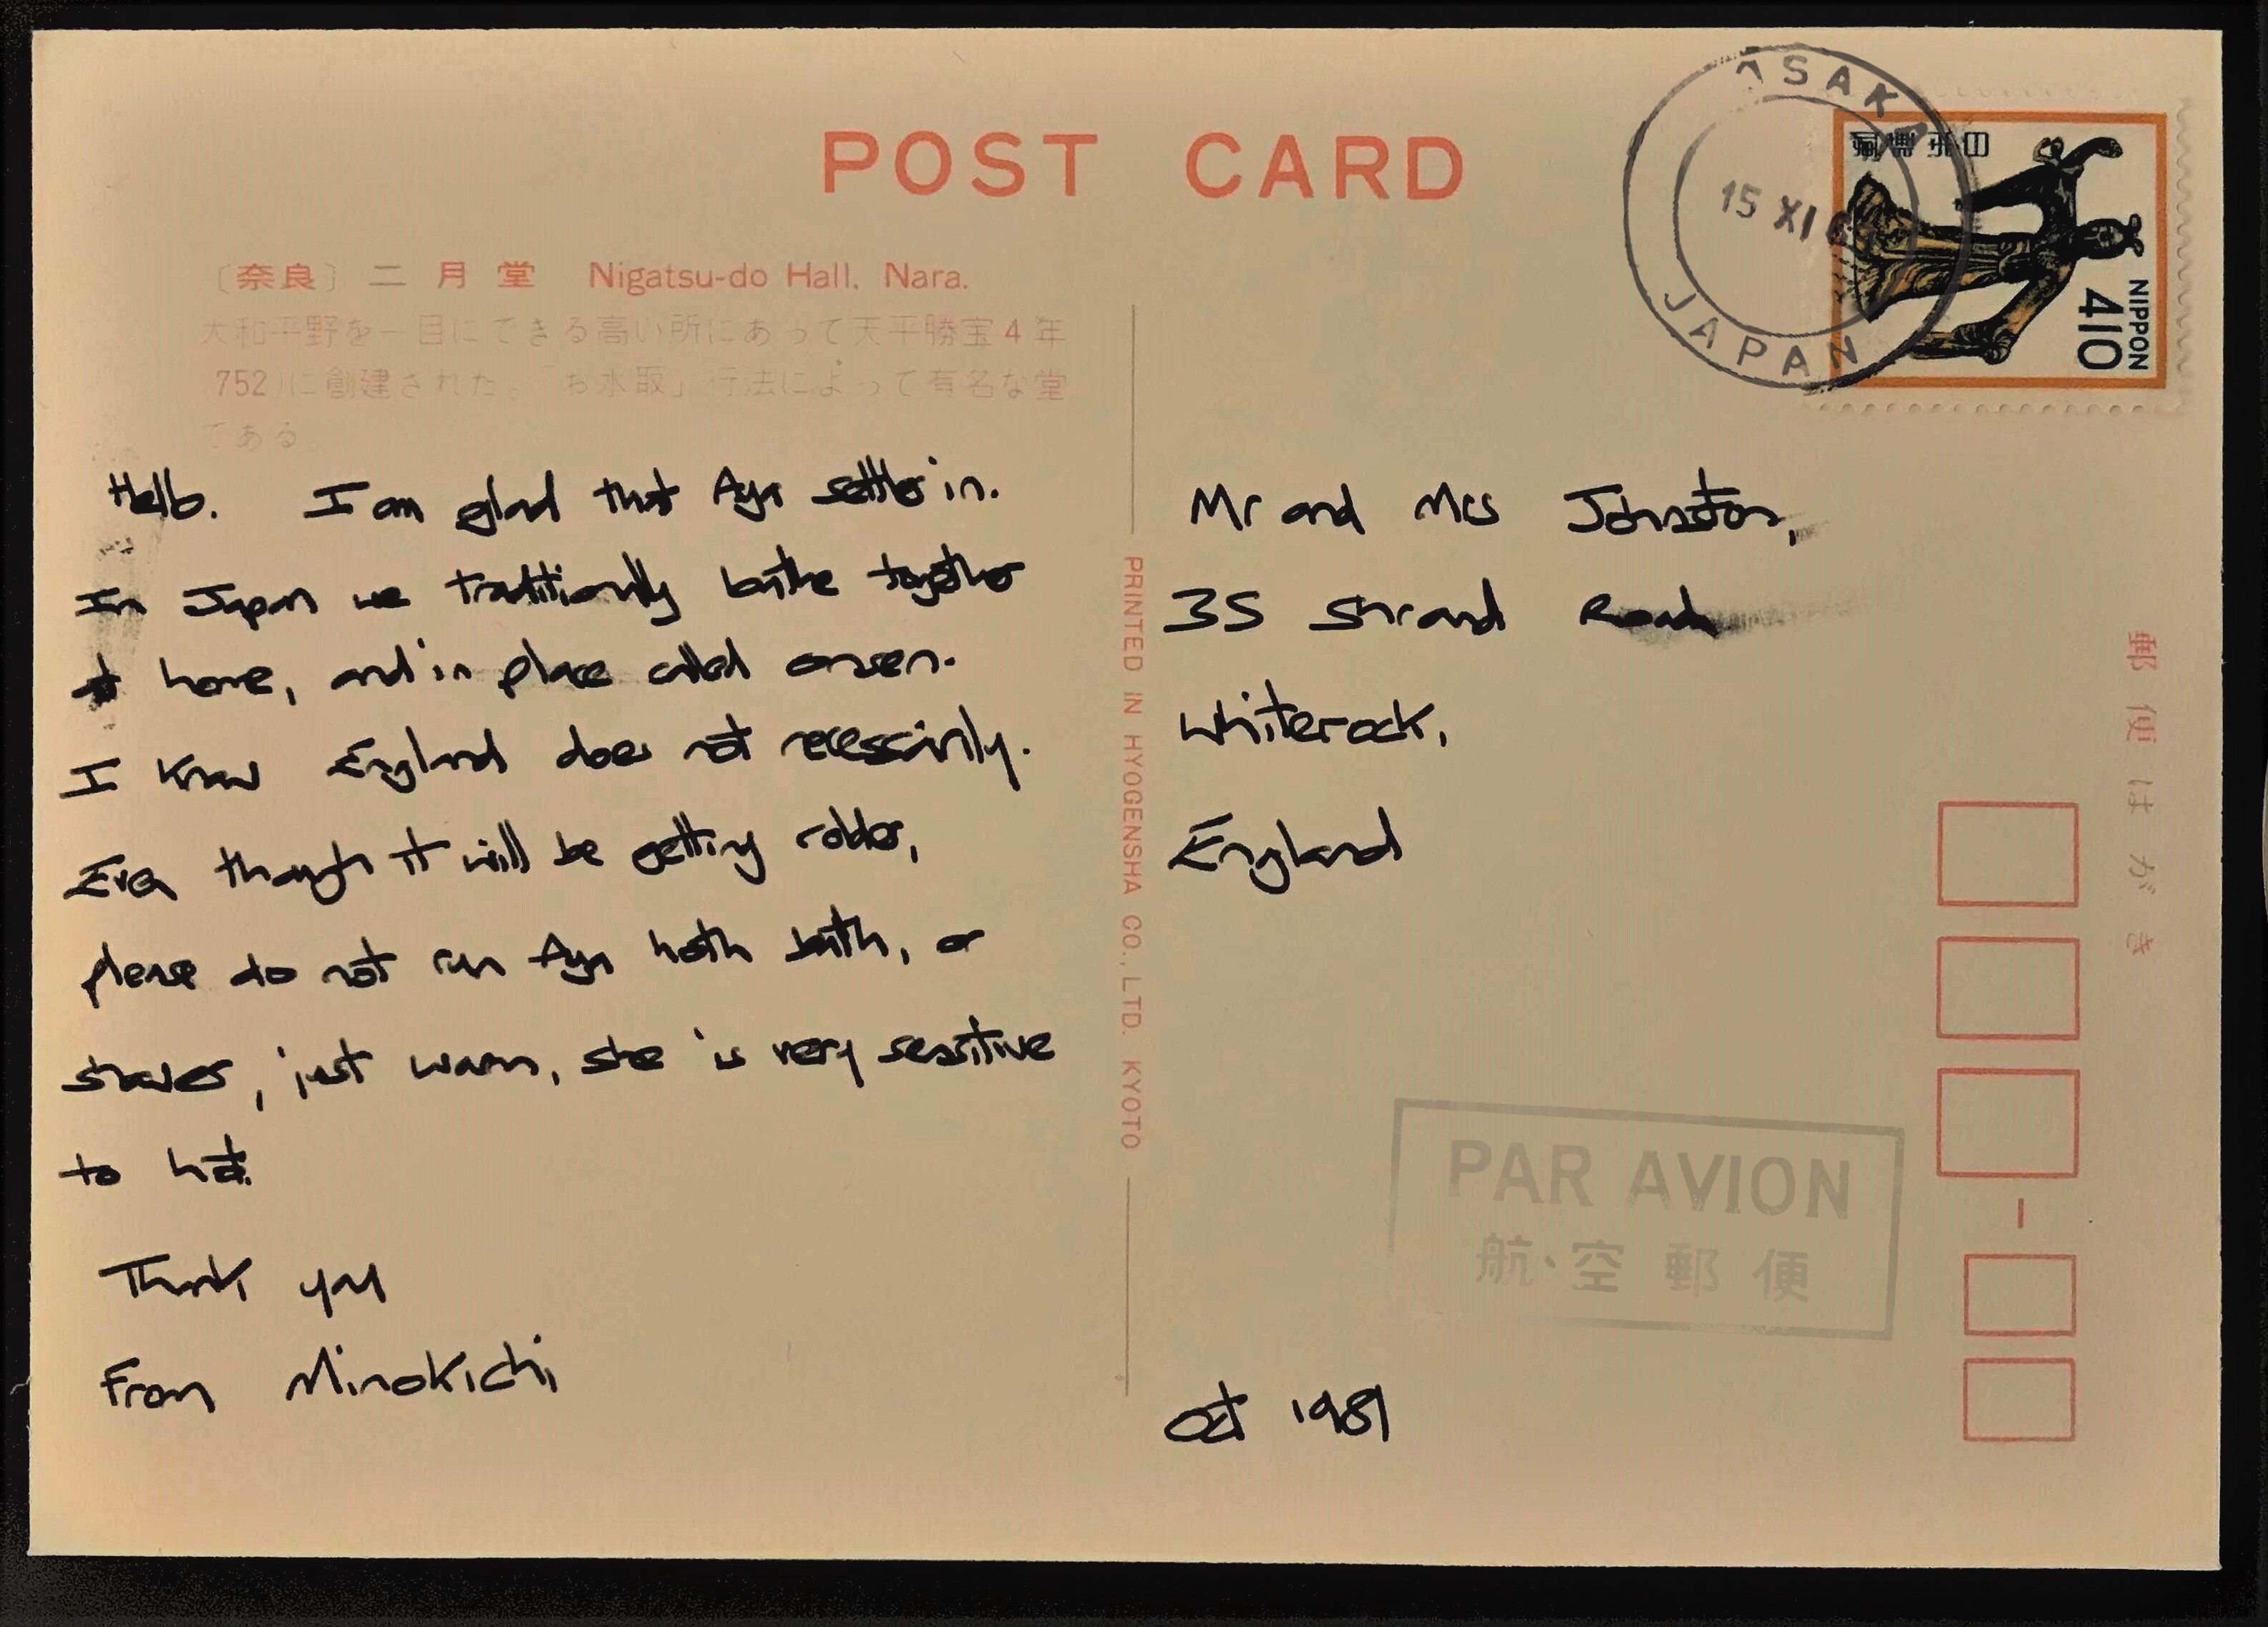 POST CARD
OSAKA
15 XI
JAPAN
日本郵便
NIPPON
410
〔奈良〕 二月堂 Nigatsu-do Hall. Nara.
大和平野を一目にてきる高い所にあって天平勝宝4年
752)に創建された。「お水取」行法によって有名な堂
である
Hello. I am glad that Aya settle in.
In Japan we traditionally bathe together
at home, and in place called onsen.
I know England does not necessarily.
Even though it will be getting colder,
please do not run Aya hoth bath, or
showers, just warm, she is very sensitive
to hot.
Thank you
From Minokichi
PRINTED IN HYOGENSHA CO., LTD. KYOTO
Mr and Mrs Johnston,
35 Strand Road
Whiterock,
England
郵便はがき
PAR AVION
航空郵便
Oct 1981